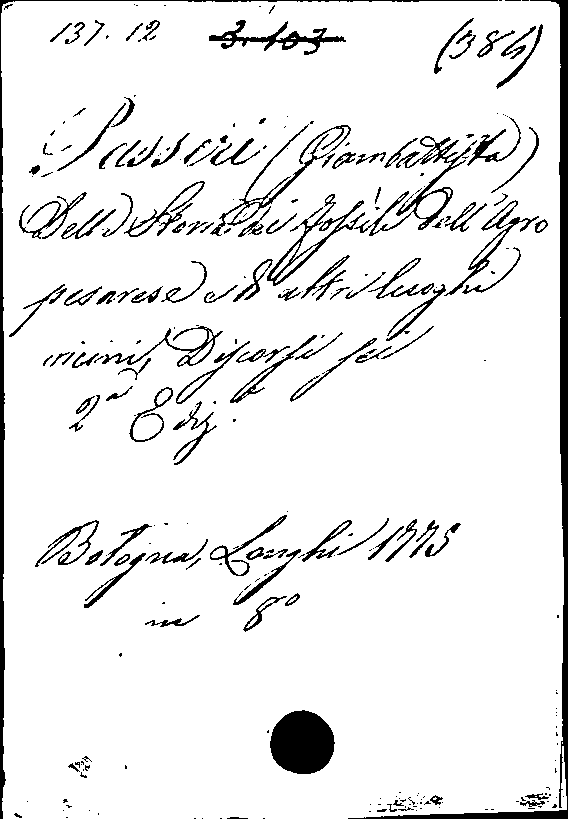 137. 12 3. 103 (384)
Passeri (Giambattista)
Della Storia dei fossili dell'Agro
pesarese e di altri luoghi
vicini, Discorsi sei
2ª Ediz.e
Bologna, Longhi 1775
in 8º